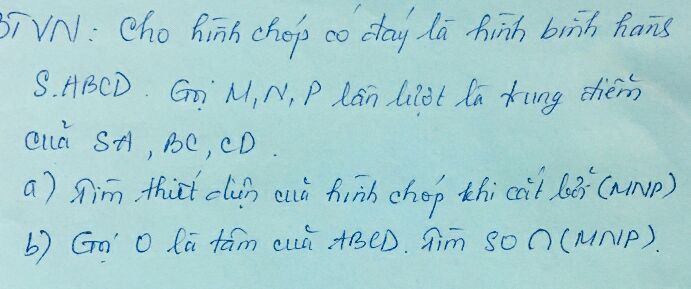 BTVN: Cho hình chóp có đáy là hình bình hành
S.ABCD. Gọi M, N, P lần lượt là trung điểm
của SA, BC, CD.
a) Tìm thiết diện của hình chóp khi cắt bởi (MNP)
b) Gọi O là tâm của ABCD. Tìm SO ∩ (MNP).